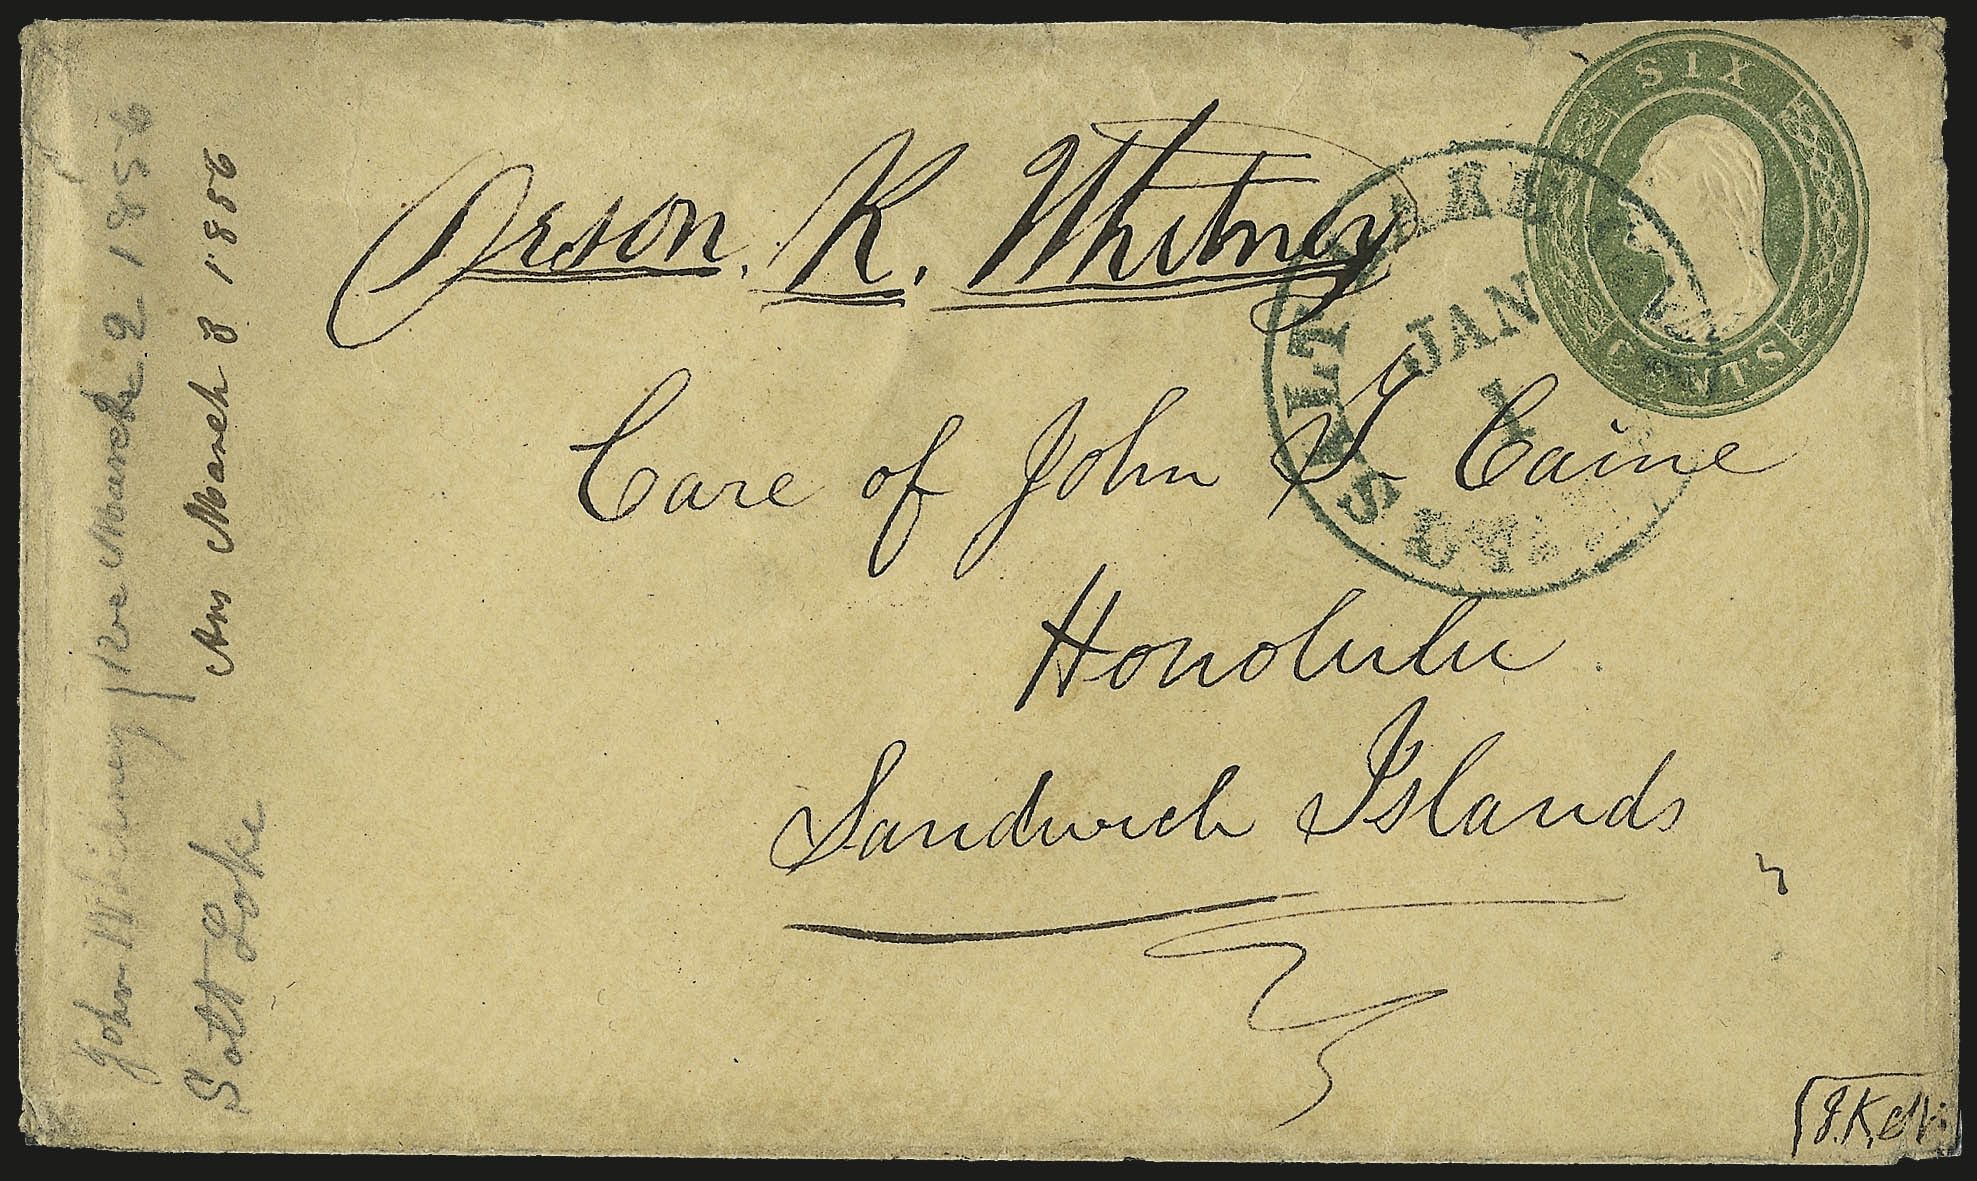 Orson. K. Whitney
Care of John T. Caine
Honolulu
Sandwich Islands
SIX
CENTS
SALT LAKE CITY
JAN
1
John Whitney
Salt Lake
Rve March 2 1856
Ans March 3 1856